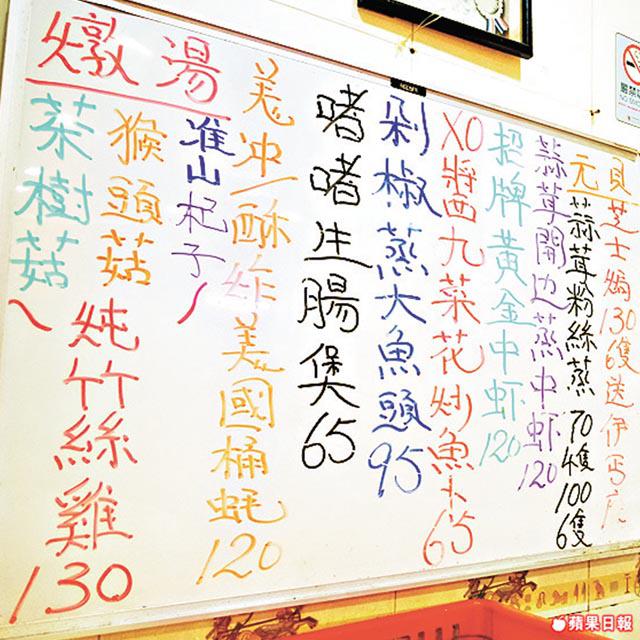 貝芝士焗130 6隻送伊丐底
元蒜茸粉絲蒸 70 4隻 100 6隻
蒜茸開边蒸中虾 120
招牌黃金中虾 120
XO醬九菜花炒魚卜 65
剁椒蒸大魚頭 95
啫啫生腸煲 65
酥炸美國桶蚝 120
燉湯
淮山杞子
猴頭菇
茶樹菇
炖竹絲雞 130
蘋果日報